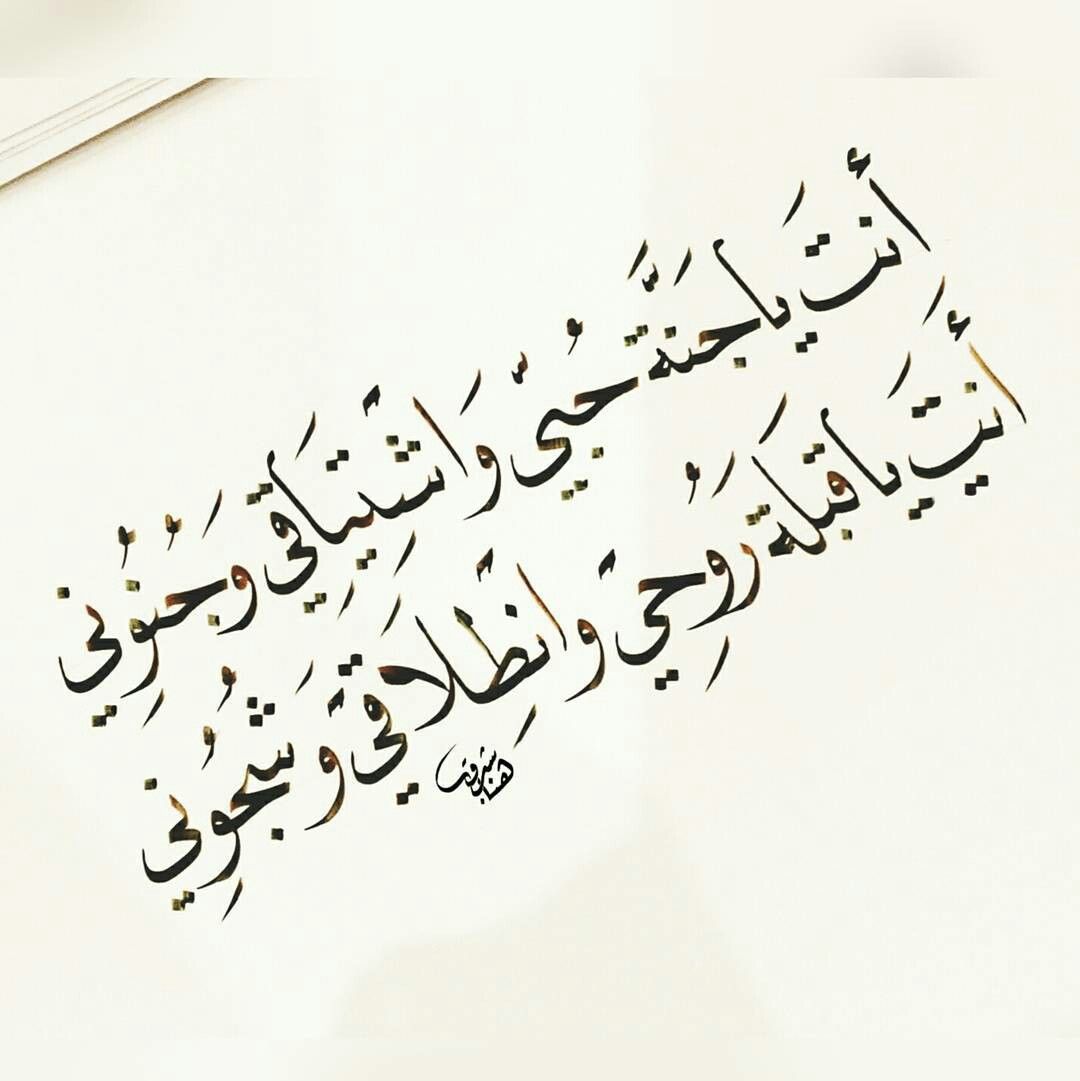 أَنتَ يَا جَنَّةَ حُبِّي وَاشْتِيَاقِي وَجُنُونِي
أَنتَ يَا قِبْلَةَ رُوحِي وَانْطِلَاقِي وَشُجُونِي